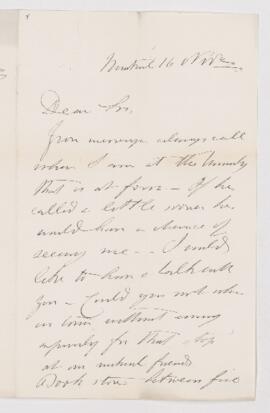 Montreal 16 Nov
Dear Sir,
Your messenger always call
when I am at the University
that is at four – If he
called a little sooner he
would have a chance of
seeing me – I would
like to have a talk with
you – Could you not when
in town without coming
expressly for that stop
at our mutual friends
Book store between five